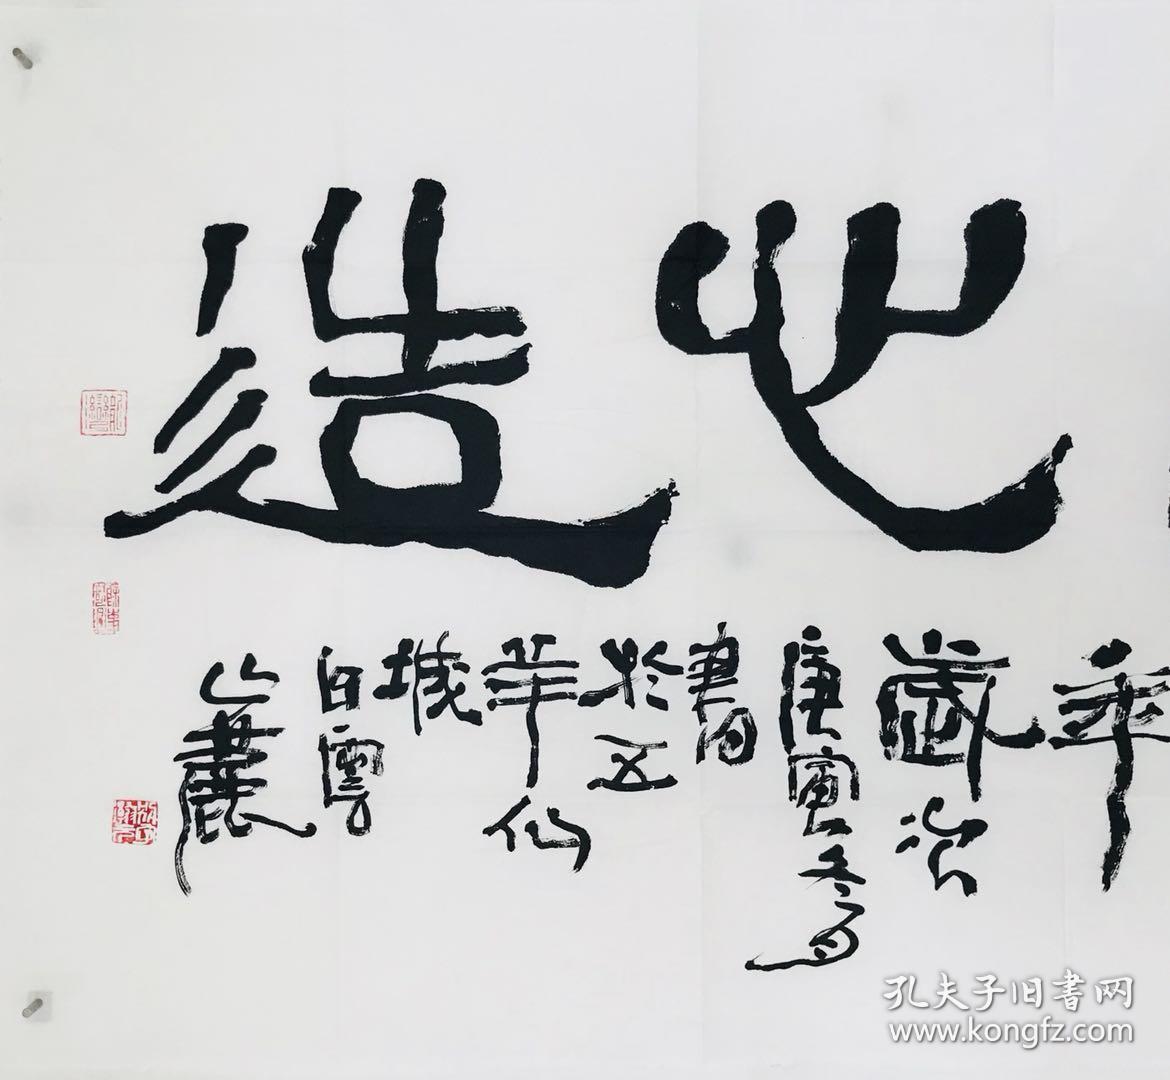 造
年
歲次
庚寅冬月
書
於五
羊仙
城
白雲
山麓
孔夫子旧書网
www.kongfz.com